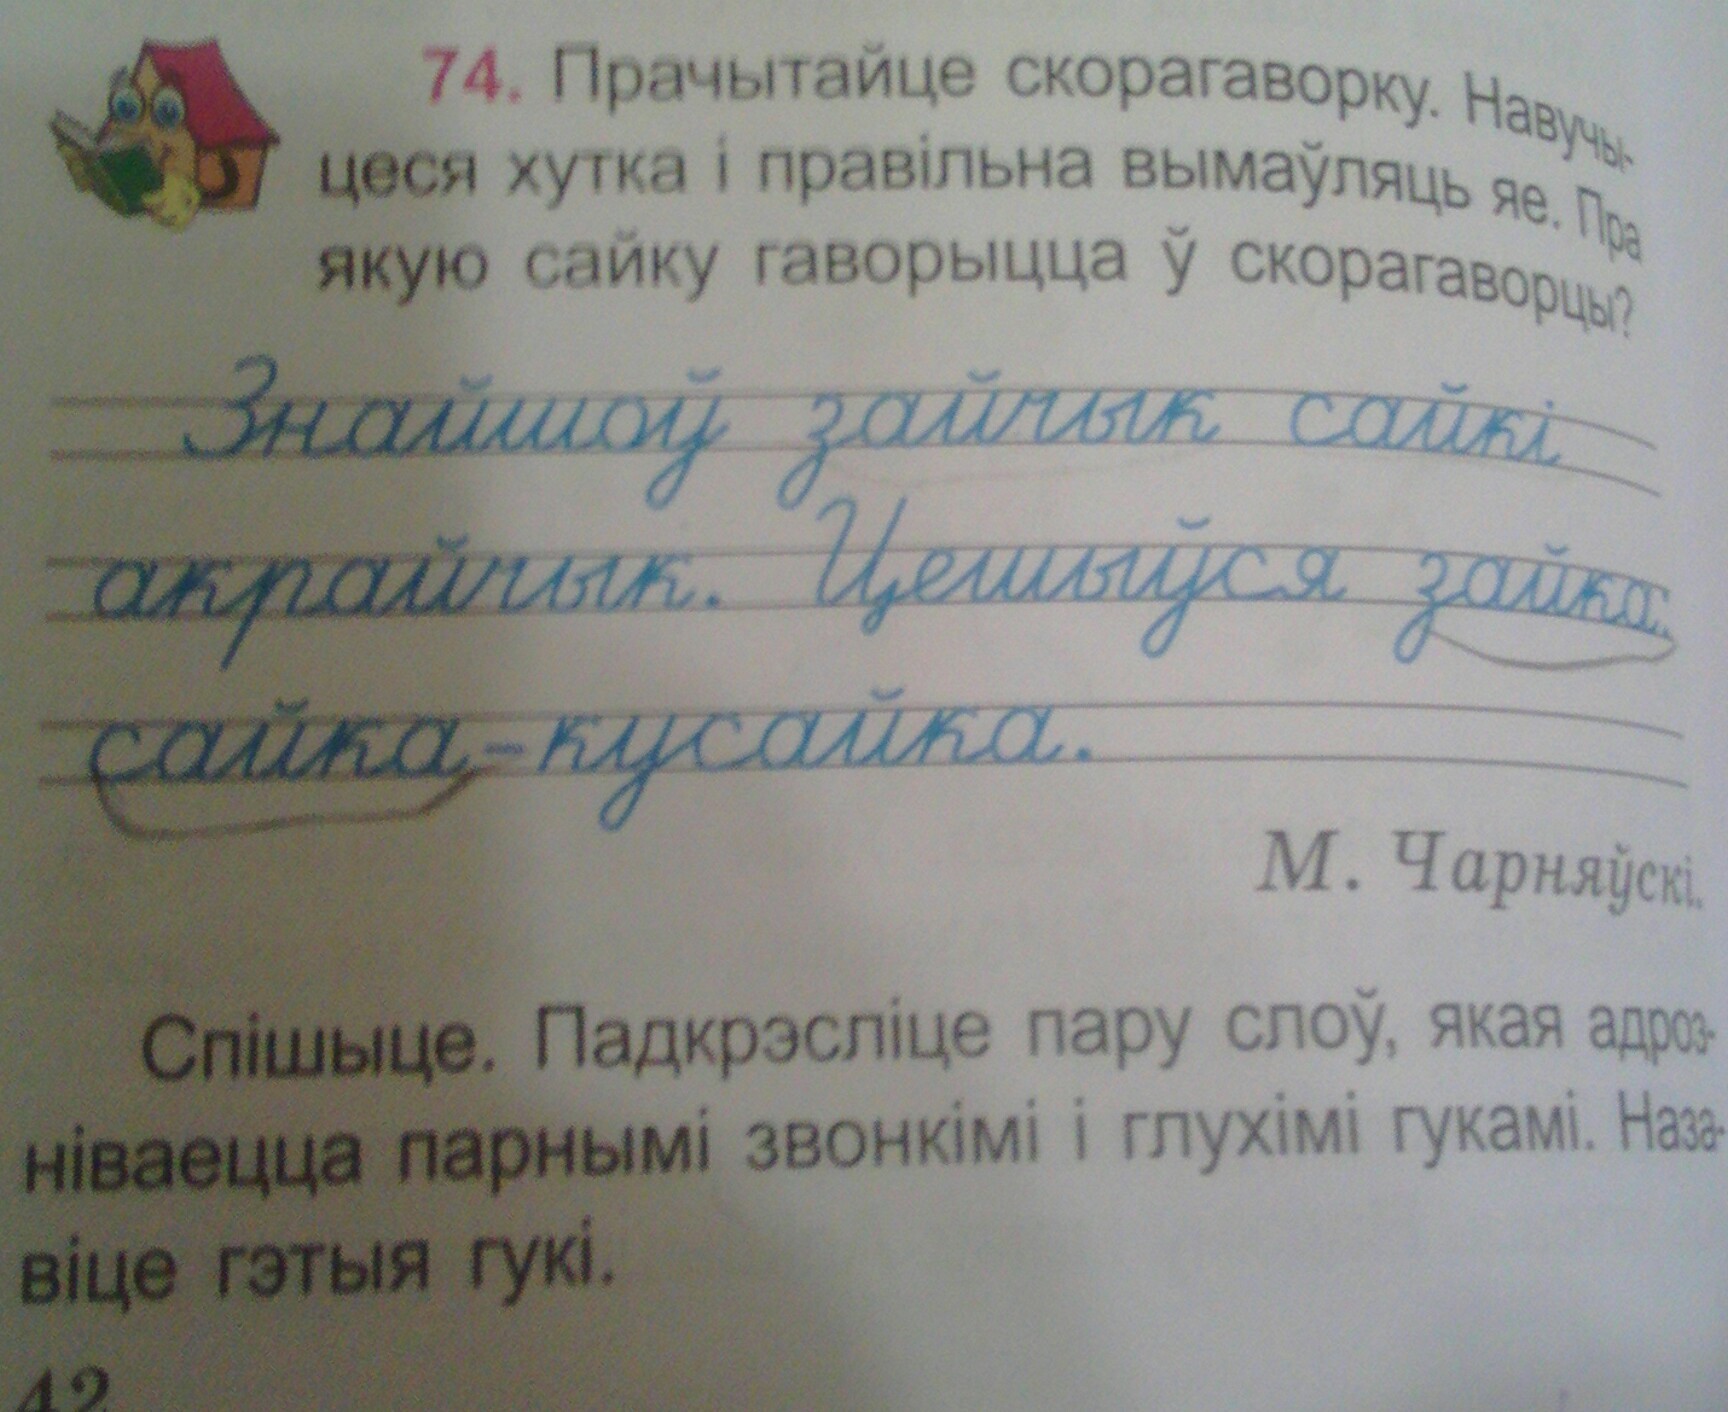 74. Прачытайце скорагаворку. Навучы-
цеся хутка і правільна вымаўляць яе. Пра
якую сайку гаворыцца ў скорагаворцы?
Знайшоў зайчык сайкі
акрайчык. Цешыўся зайка.
сайка-кусайка.
М. Чарняўскі.
Спішыце. Падкрэсліце пару слоў, якая адроз-
ніваецца парнымі звонкімі і глухімі гукамі. Наза-
віце гэтыя гукі.
42